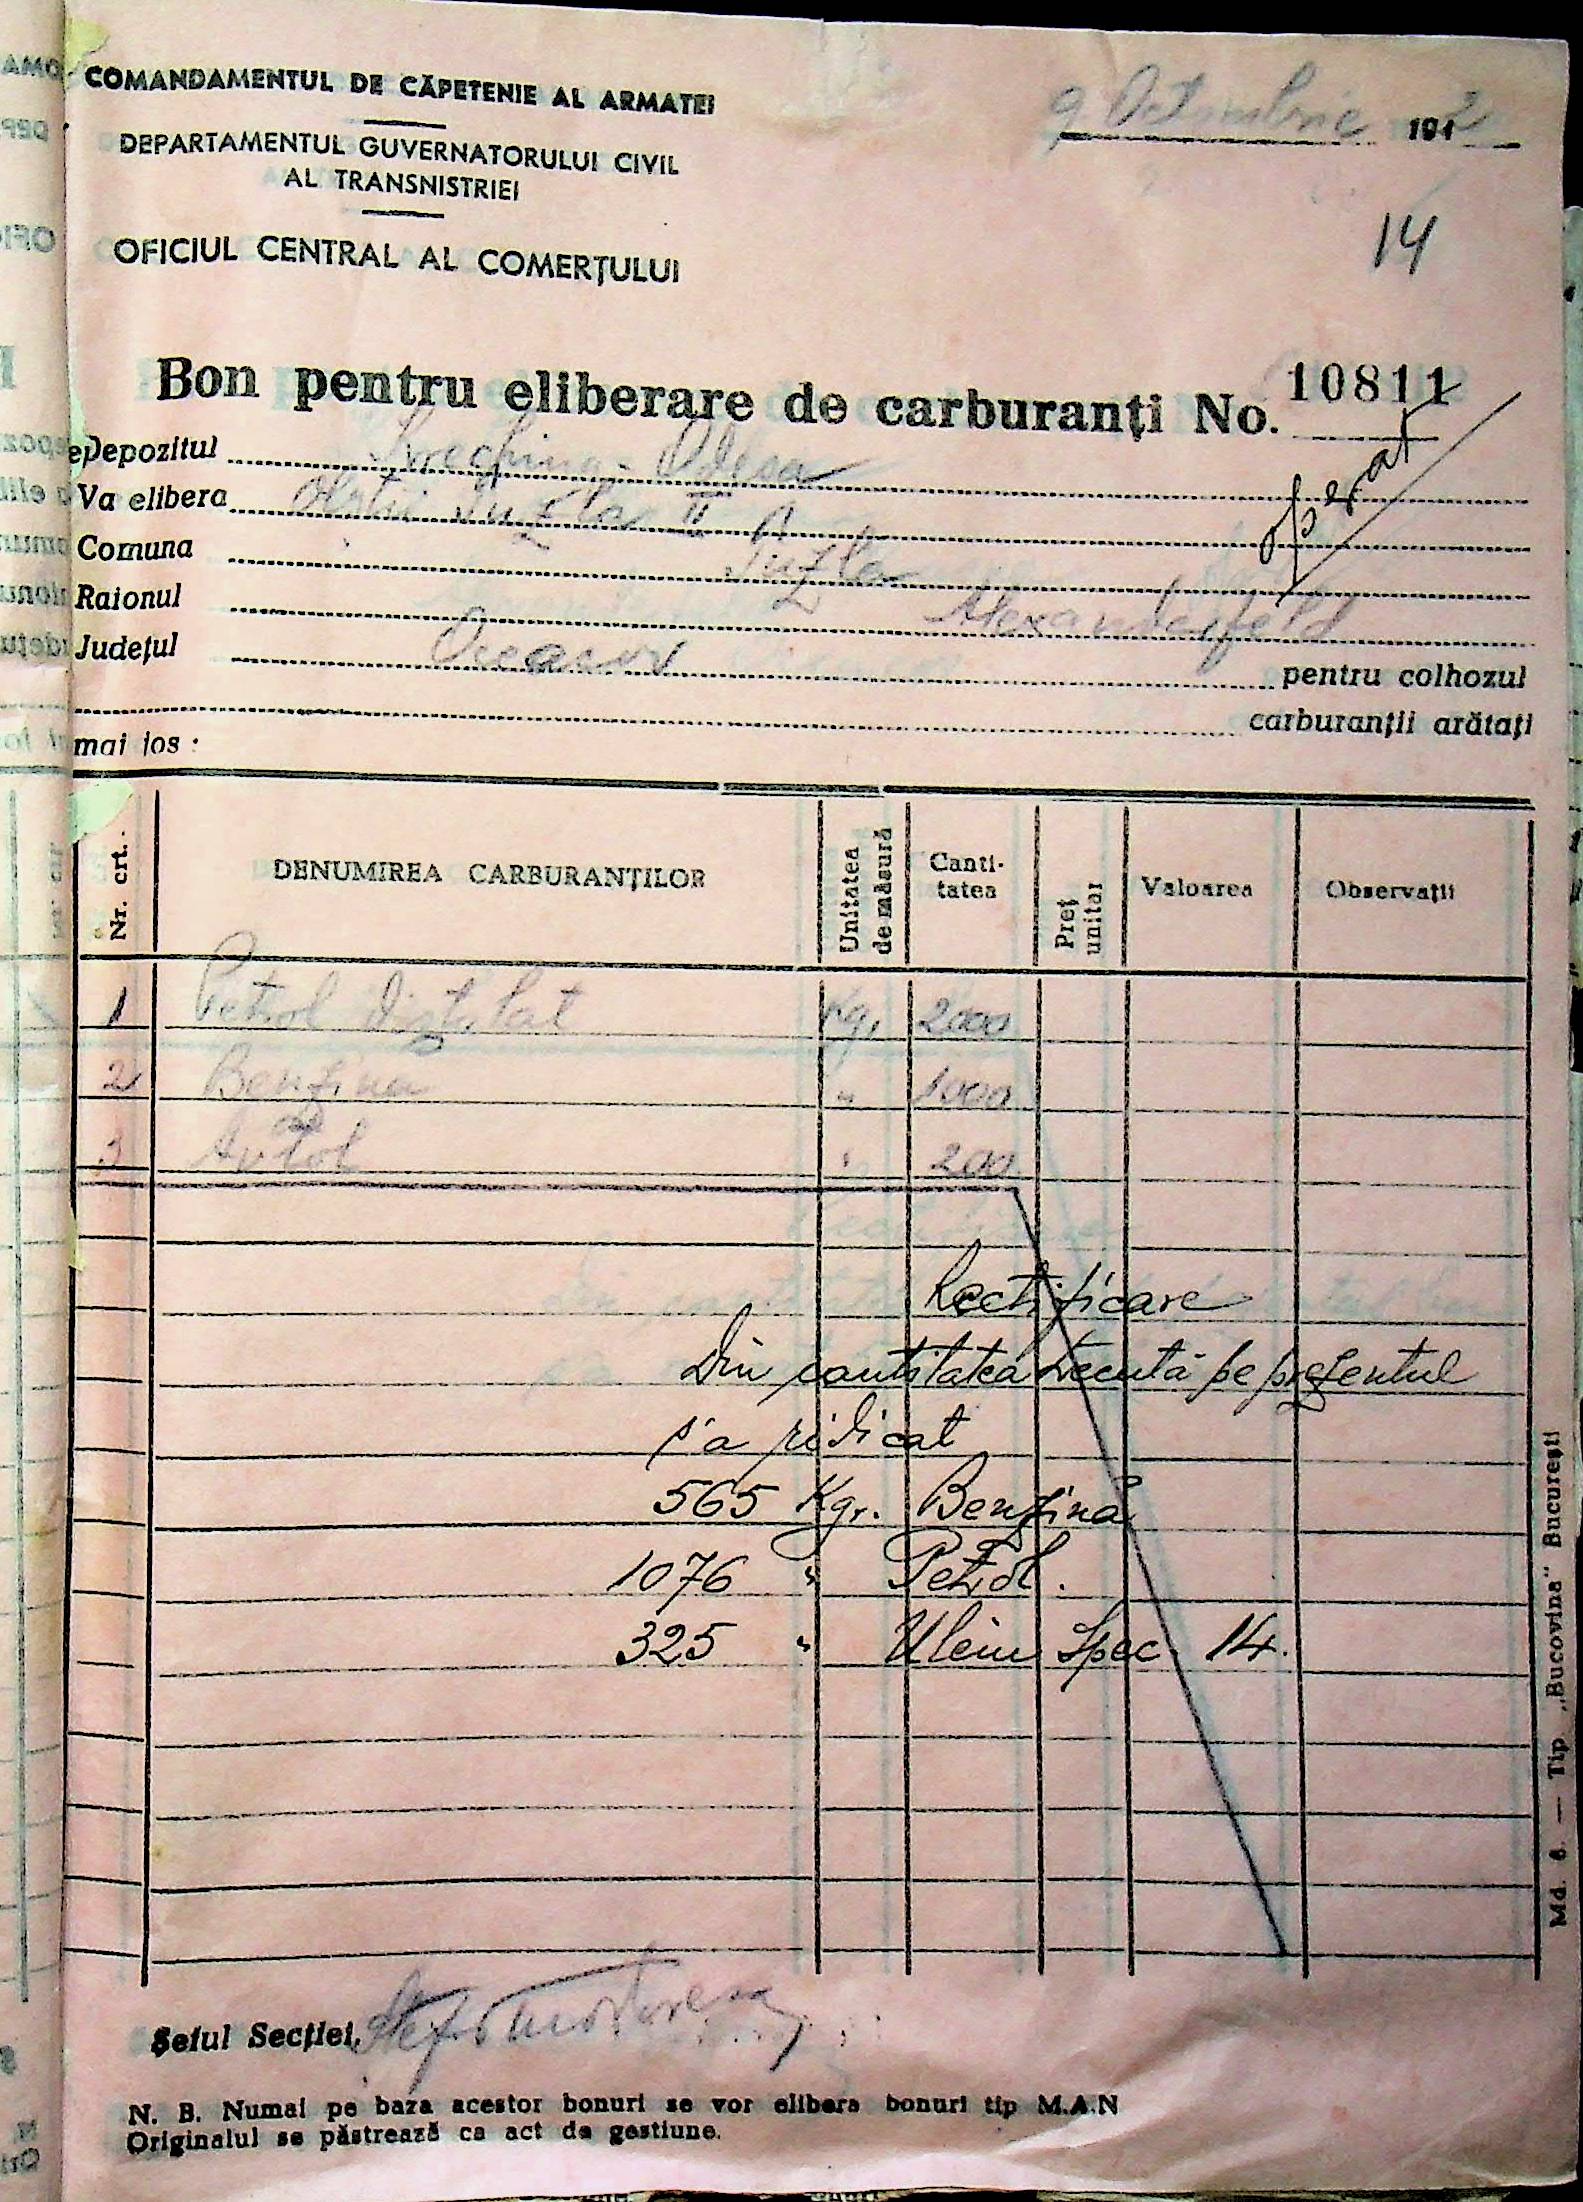 COMANDAMENTUL DE CĂPETENIE AL ARMATEI
DEPARTAMENTUL GUVERNATORULUI CIVIL
AL TRANSNISTRIEI
OFICIUL CENTRAL AL COMERȚULUI
9 Octombrie 1942
14
Bon pentru eliberare de carburanți No. 10811
Depozitul Odesa
operat
Va elibera Suzla II
Comuna Suzla
Raionul Alexanderfeld
Județul Oceacov pentru colhozul
carburanții arătați
mai jos :
Nr. crt. DENUMIREA CARBURANȚILOR Unitatea de măsură Canti-tatea Preț unitar Valoarea Observații
1 Petrol distilat Kg. 2000
2 Benzina " 1000
3 Avtol " 200
Rectificare
Din cantitatea trecută pe prezentul
s'a ridicat
565 Kgr. Benzină
1076 " Petrol.
325 " Uleiu Spec. 14.
Șeful Secției,
N. B. Numai pe baza acestor bonuri se vor elibera bonuri tip M.A.N
Originalul se păstrează ca act de gestiune.
Md. 6. — Tip. „Bucovina" București